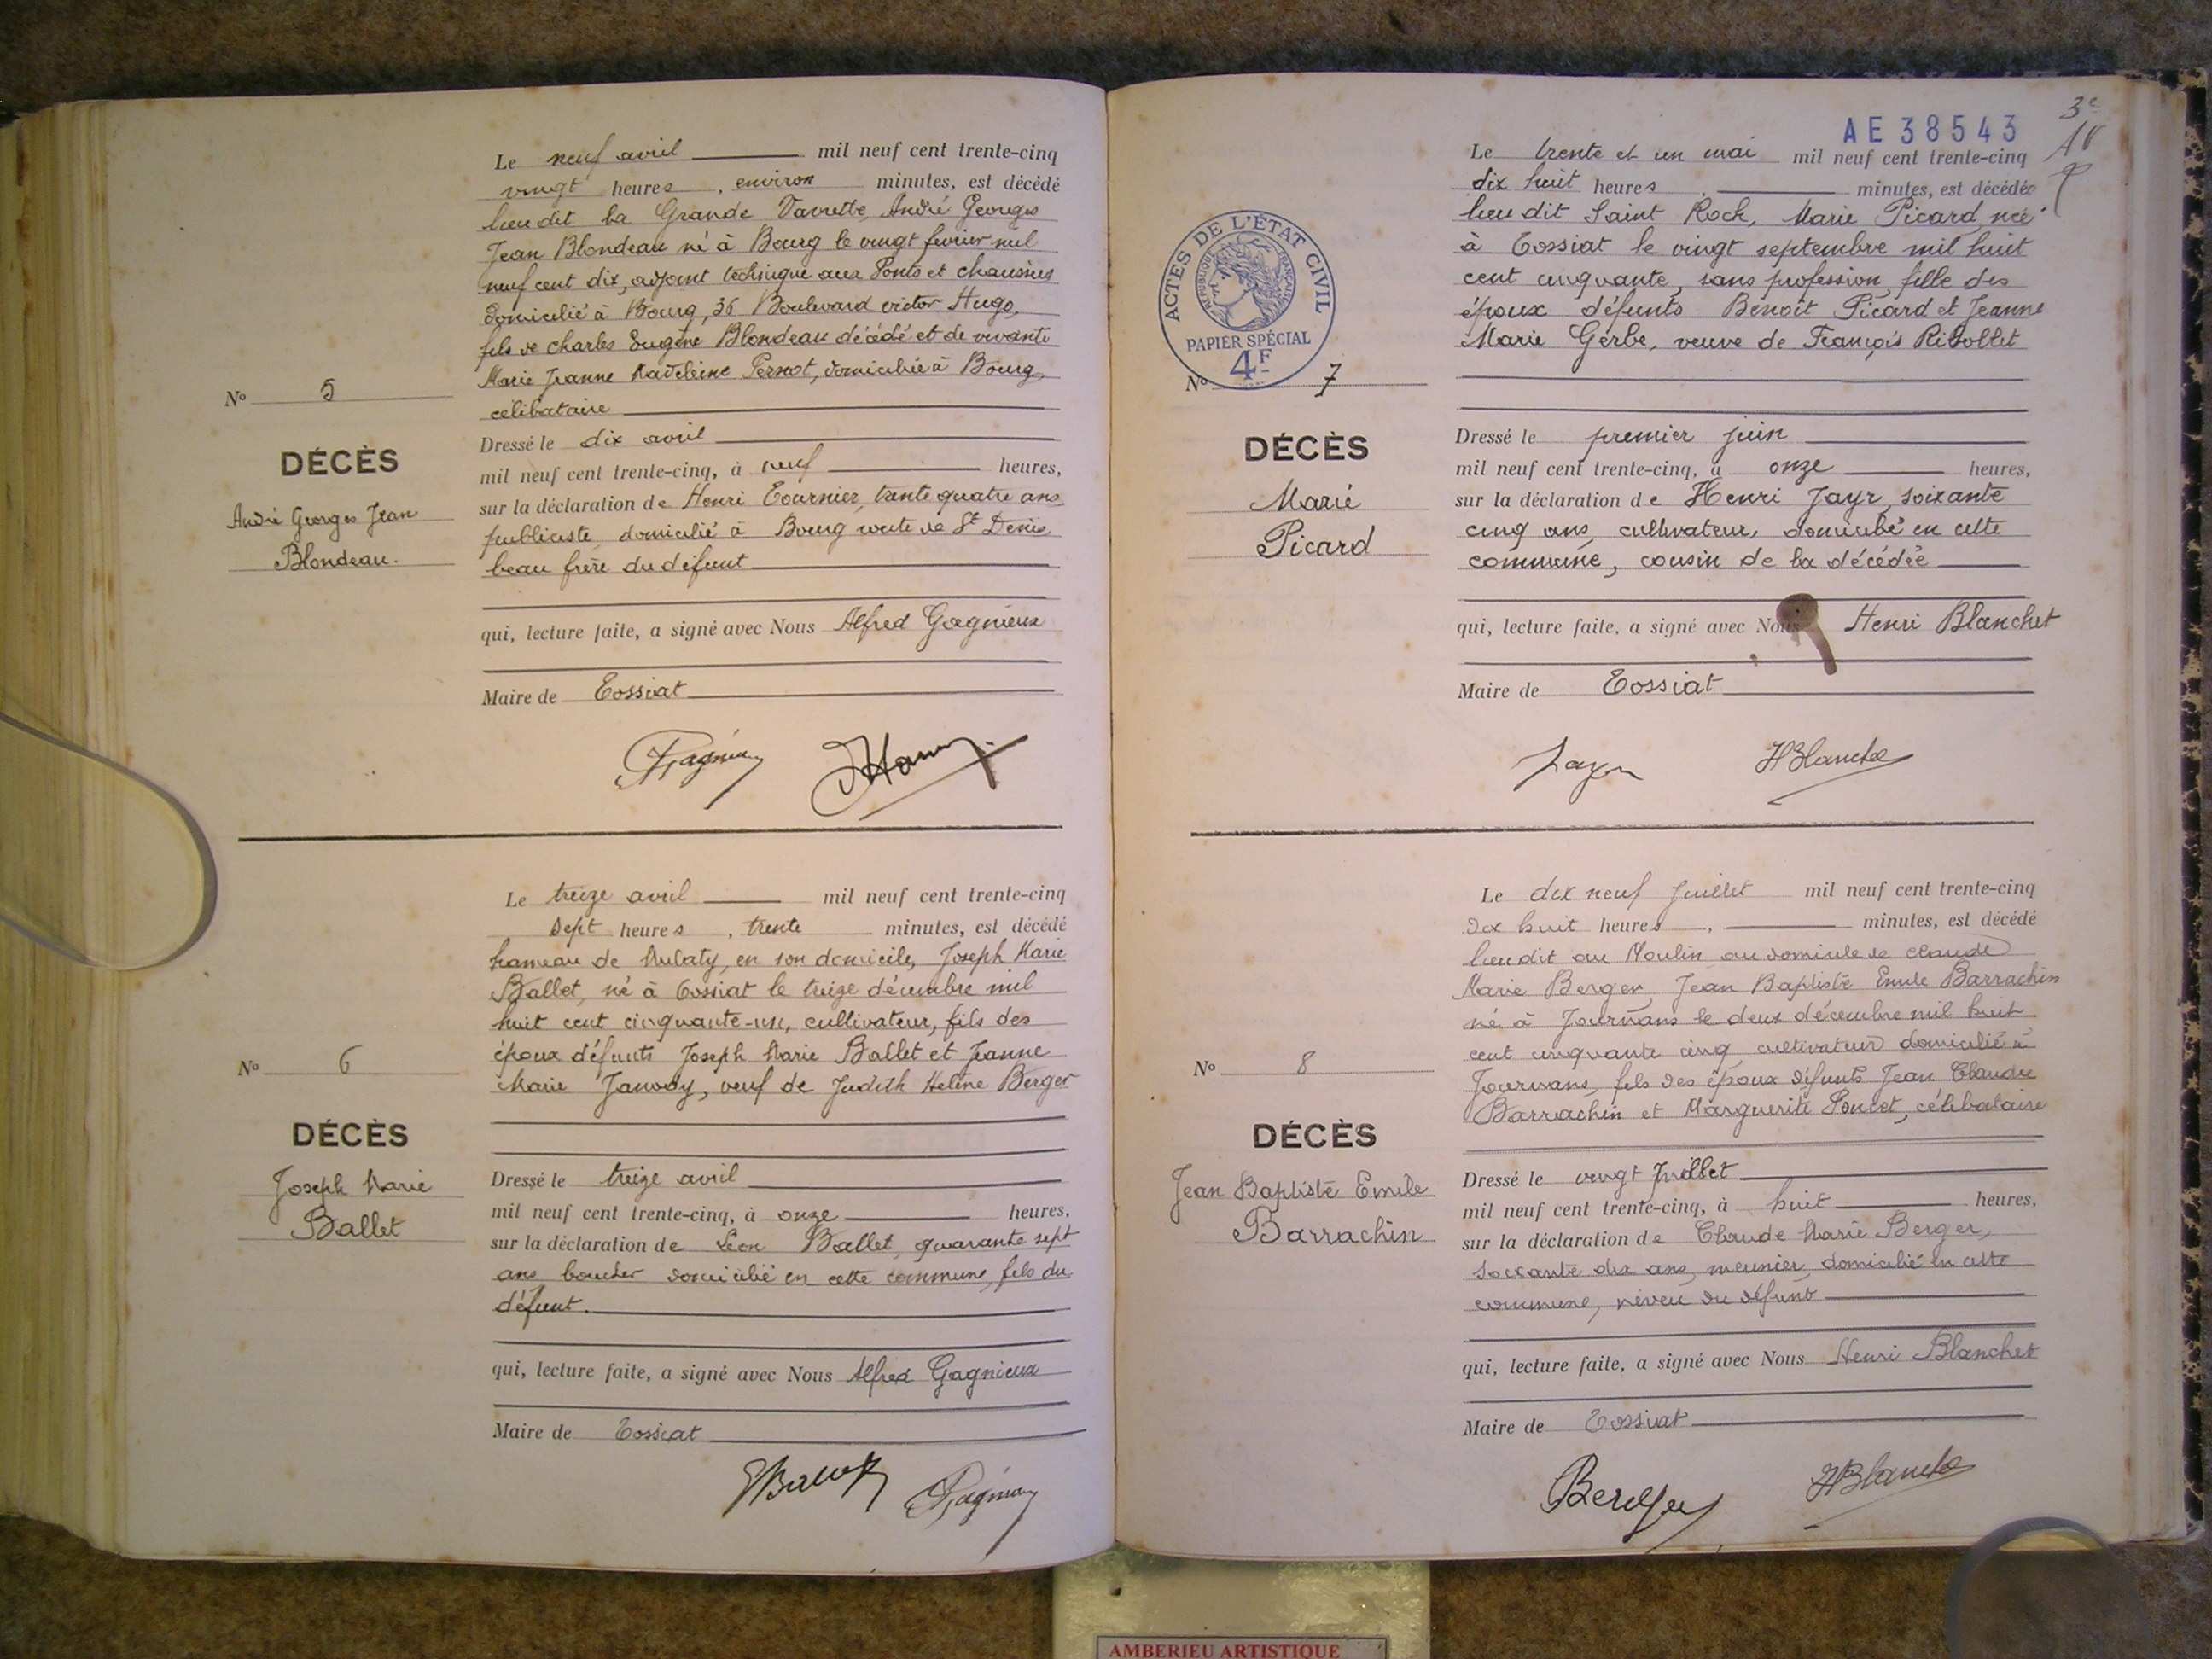 Le neuf avril mil neuf cent trente-cinq
vingt heures, environ minutes, est décédé
lieu dit la Grande Vavrette, André Georges
Jean Blondeau né à Bourg le vingt fevrier mil
neuf cent dix, adjoint téchnique aux Ponts et chaussées
domicilié à Bourg, 36 Boulevard victor Hugo,
fils de charles Eugène Blondeau décédé et de vivante
Marie Jeanne Madeleine Pernot, domiciliée à Bourg,
célibataire
No 5
DÉCÈS
André Georges Jean
Blondeau.
Dressé le dix avril
mil neuf cent trente-cinq, à neuf heures,
sur la déclaration de Henri Tournier, trente quatre ans
publiciste domicilié à Bourg route de St Denis
beau frère du défunt
qui, lecture faite, a signé avec Nous Alfred Gagnieux
Maire de Tossiat
Le treize avril mil neuf cent trente-cinq
sept heures, trente minutes, est décédé
hameau de , en son domicile, Joseph Marie
Ballet, né à Tossiat le treize décembre mil
huit cent cinquante-un, cultivateur, fils des
époux défunts Joseph Marie Ballet et Jeanne
Marie Janvoy, veuf de Judith Helène Berger
No 6
DÉCÈS
Joseph Marie
Ballet
Dressé le treize avril
mil neuf cent trente-cinq, à onze heures,
sur la déclaration de Léon Ballet, quarante sept
ans boucher domicilié en cette commune, fils du
défunt.
qui, lecture faite, a signé avec Nous Alfred Gagnieux
Maire de Tossiat
AE 38543
3e
Le trente et un mai mil neuf cent trente-cinq
dix huit heures, minutes, est décédée
lieu dit Saint Roch, Marie Picard née
à Tossiat le vingt septembre mil huit
cent cinquante, sans profession, fille des
époux défunts Benoît Picard et Jeanne
Marie Gerbe, veuve de François Ribollet
ACTES DE L'ÉTAT CIVIL
RÉPUBLIQUE FRANÇAISE
PAPIER SPÉCIAL
4F
No 7
DÉCÈS
Marie
Picard
Dressé le premier juin
mil neuf cent trente-cinq, à onze heures,
sur la déclaration de Henri Jayr, soixante
cinq ans, cultivateur, domicilié en cette
commune, cousin de la décédée
qui, lecture faite, a signé avec Nous Henri Blanchet
Maire de Tossiat
Jayr HBlanchet
Le dix neuf juillet mil neuf cent trente-cinq
dix huit heures, minutes, est décédé
lieu dit au Moulin au domicile de claude
Marie Berger, Jean Baptiste Emile Barrachin
né à Journans le deux décembre mil huit
cent cinquante cinq cultivateur domicilié à
Journans, fils des époux défunts Jean Claude
Barrachin et Marguerite Poncet, célibataire
No 8
DÉCÈS
Jean Baptiste Emile
Barrachin
Dressé le vingt juillet
mil neuf cent trente-cinq, à huit heures,
sur la déclaration de Claude Marie Berger,
soixante dix ans, meunier, domicilié en cette
commune, neveu du défunt
qui, lecture faite, a signé avec Nous Henri Blanchet
Maire de Tossiat
Berger HBlanchet
AMBERIEU ARTISTIQUE